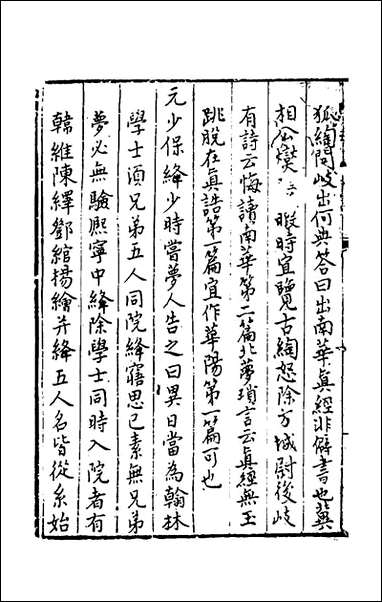 狐綯問岐出何典答曰出南華真經非僻書也冀
相公爕 暇時宜覽古綯怒除方城尉後岐
有詩云悔讀南華第二篇北夢瑣言云真經無玉
跳脫在真誥第一篇宜作華陽第一篇可也
元少保絳少時嘗夢人告之曰異日當為翰林
學士須兄弟五人同院絳寤思已素無兄弟
夢必無驗熈寧中絳除學士同時入院者有
韓維陳繹鄧綰楊繪并絳五人名皆從糸始